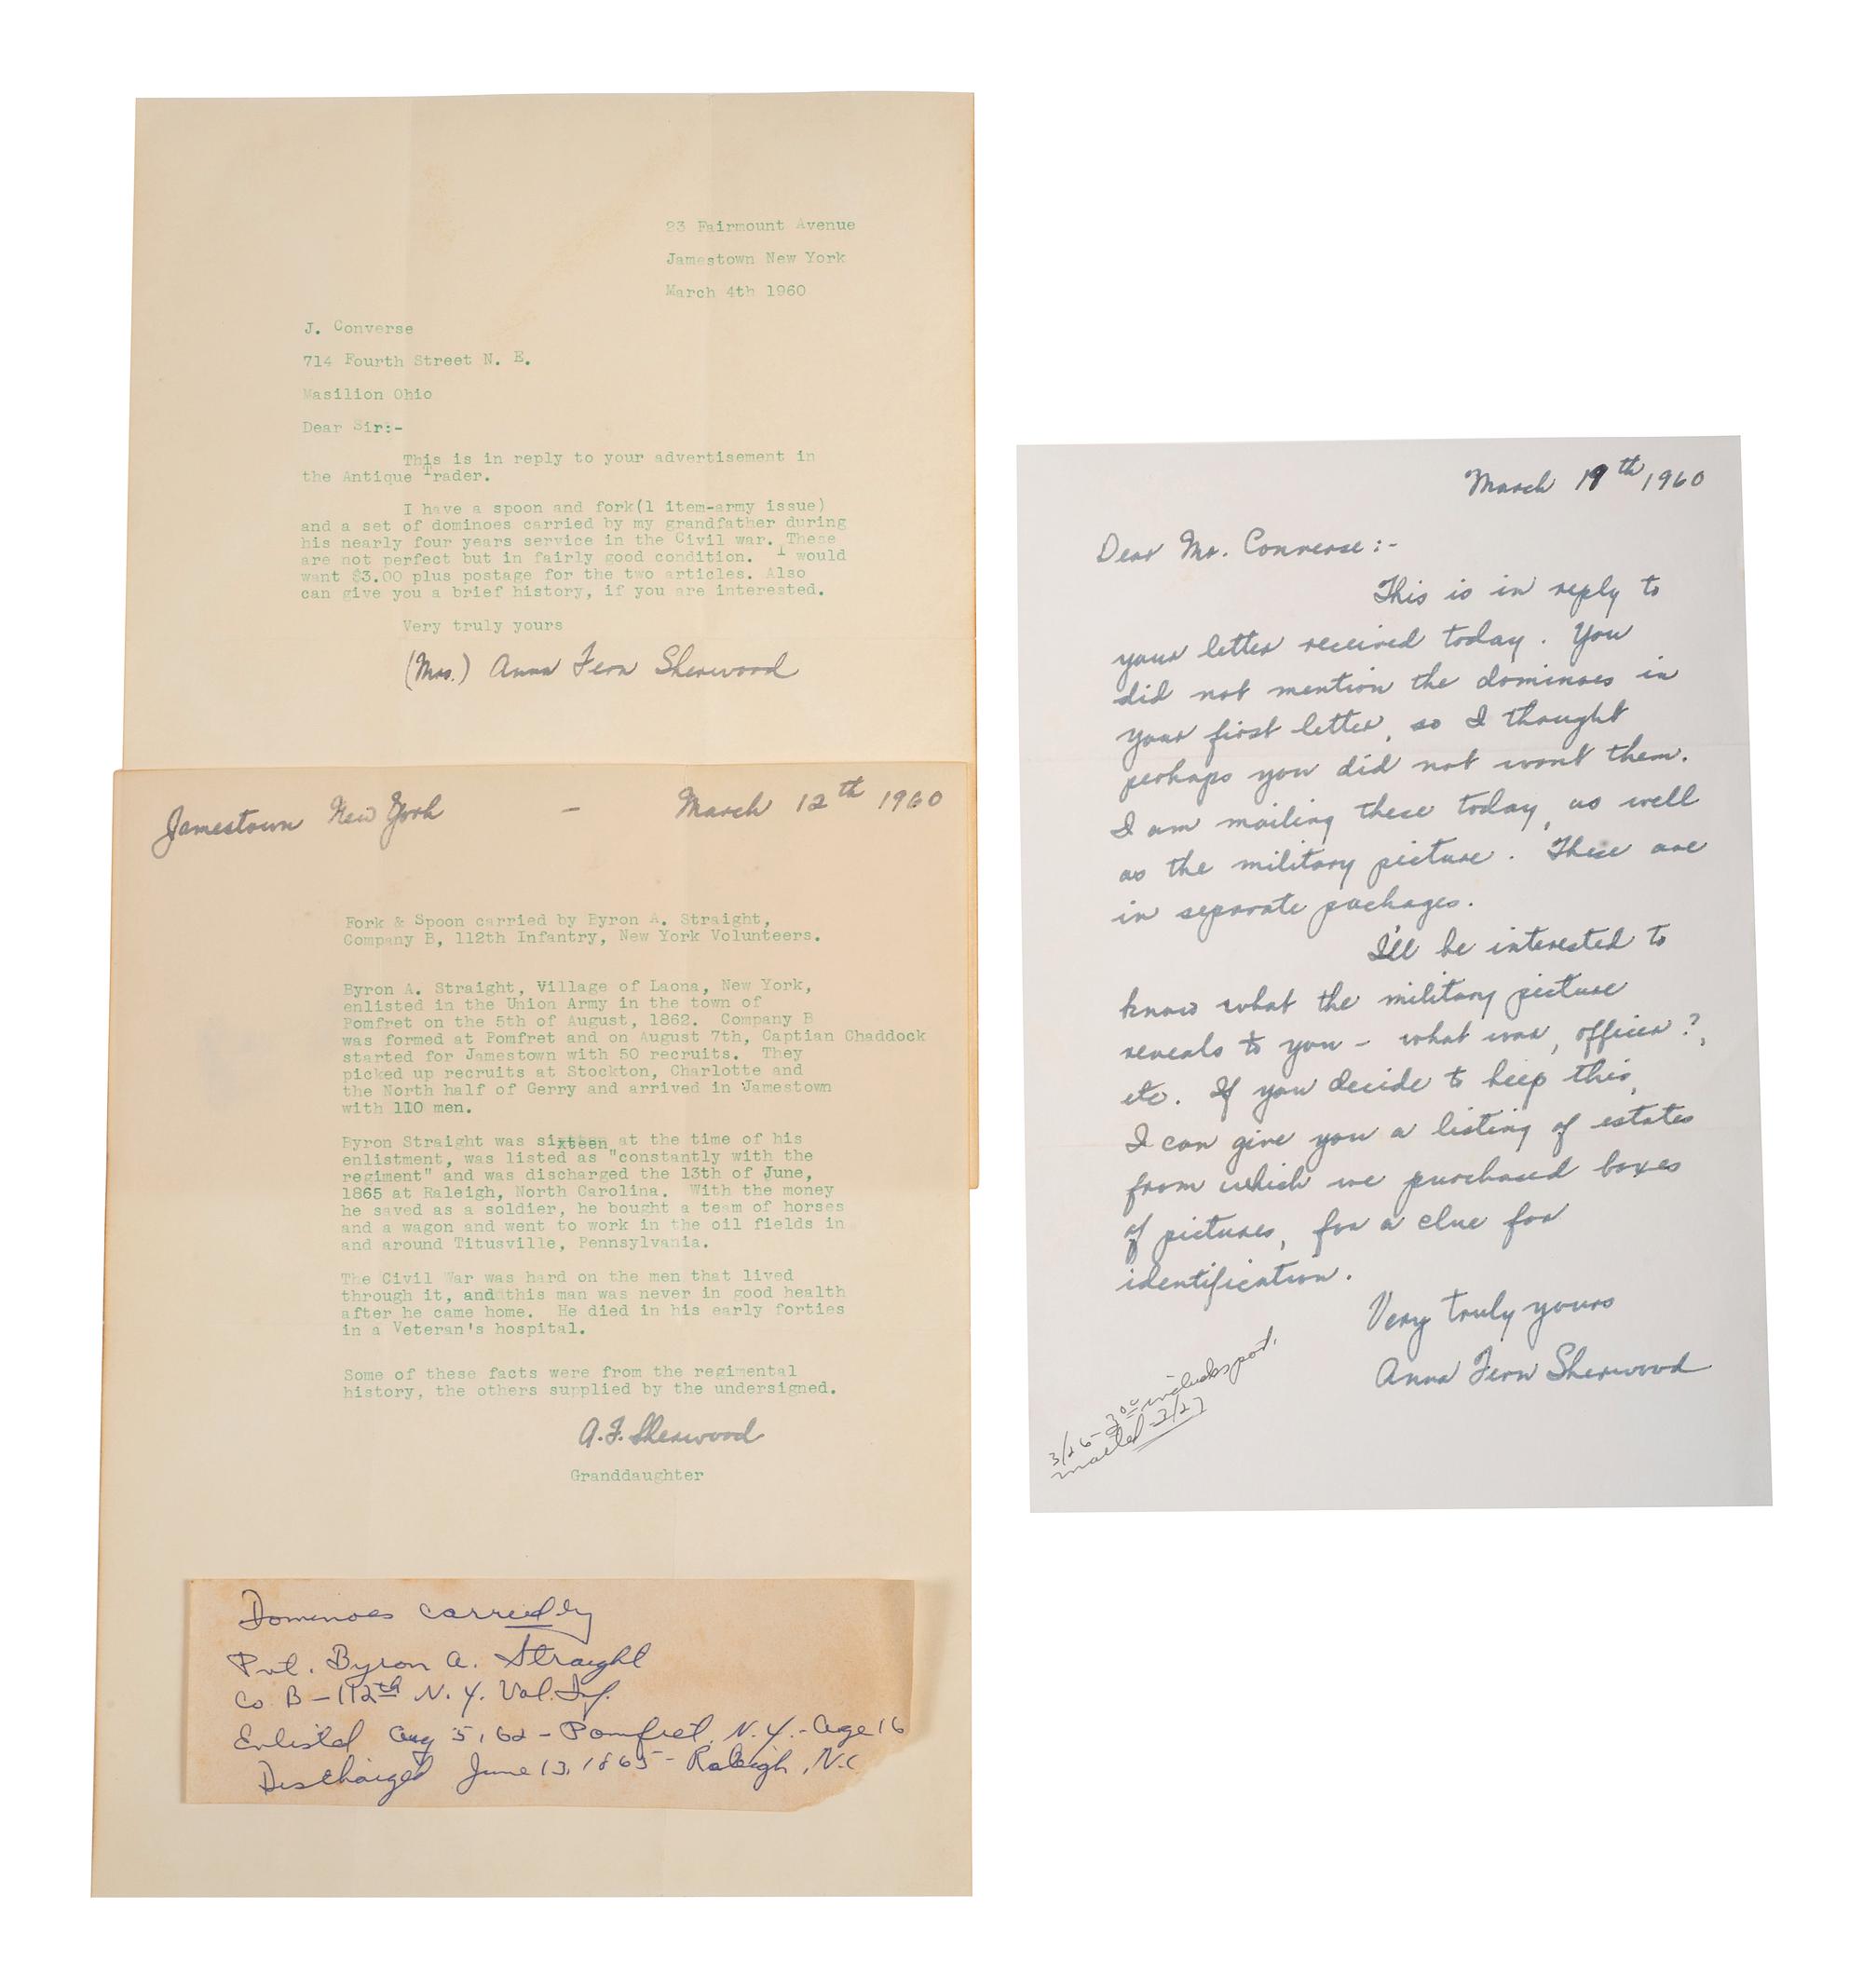 23 Fairmount Avenue
Jamestown New York
March 4th 1960
J. Converse
714 Fourth Street N. E.
Masilion Ohio
Dear Sir:-
This is in reply to your advertisement in
the Antique Trader.
I have a spoon and fork(1 item-army issue)
and a set of dominoes carried by my grandfather during
his nearly four years service in the Civil war. These
are not perfect but in fairly good condition. I would
want $3.00 plus postage for the two articles. Also
can give you a brief history, if you are interested.
Very truly yours
(Mrs.) Anna Fern Sherwood
Jamestown New York - March 12th 1960
Fork & Spoon carried by Byron A. Straight,
Company B, 112th Infantry, New York Volunteers.
Byron A. Straight, Village of Laona, New York,
enlisted in the Union Army in the town of
Pomfret on the 5th of August, 1862. Company B
was formed at Pomfret and on August 7th, Captian Chaddock
started for Jamestown with 50 recruits. They
picked up recruits at Stockton, Charlotte and
the North half of Gerry and arrived in Jamestown
with 110 men.
Byron Straight was sixteen at the time of his
enlistment, was listed as "constantly with the
regiment" and was discharged the 13th of June,
1865 at Raleigh, North Carolina. With the money
he saved as a soldier, he bought a team of horses
and a wagon and went to work in the oil fields in
and around Titusville, Pennsylvania.
The Civil War was hard on the men that lived
through it, and this man was never in good health
after he came home. He died in his early forties
in a Veteran's hospital.
Some of these facts were from the regimental
history, the others supplied by the undersigned.
A. F. Sherwood
Granddaughter
Dominoes carried by
Pvt. Byron A. Straight
Co B - 112th N. Y. Vol. Inf.
Enlisted Aug 5, 62 - Pomfret, N.Y. - Age 16
Discharged June 13, 1865 - Raleigh, N.C
March 19th 1960
Dear Mr. Converse:-
This is in reply to
your letter received today. You
did not mention the dominoes in
your first letter, so I thought
perhaps you did not want them.
I am mailing these today, as well
as the military picture. These are
in separate packages.
I'll be interested to
know what the military picture
reveals to you - what war, officer?,
etc. If you decide to keep this,
I can give you a listing of estates
from which we purchased boxes
of pictures, for a clue for
identification.
Very truly yours
Anna Fern Sherwood
3/26 - 3.00 includes post.
mailed 3/27